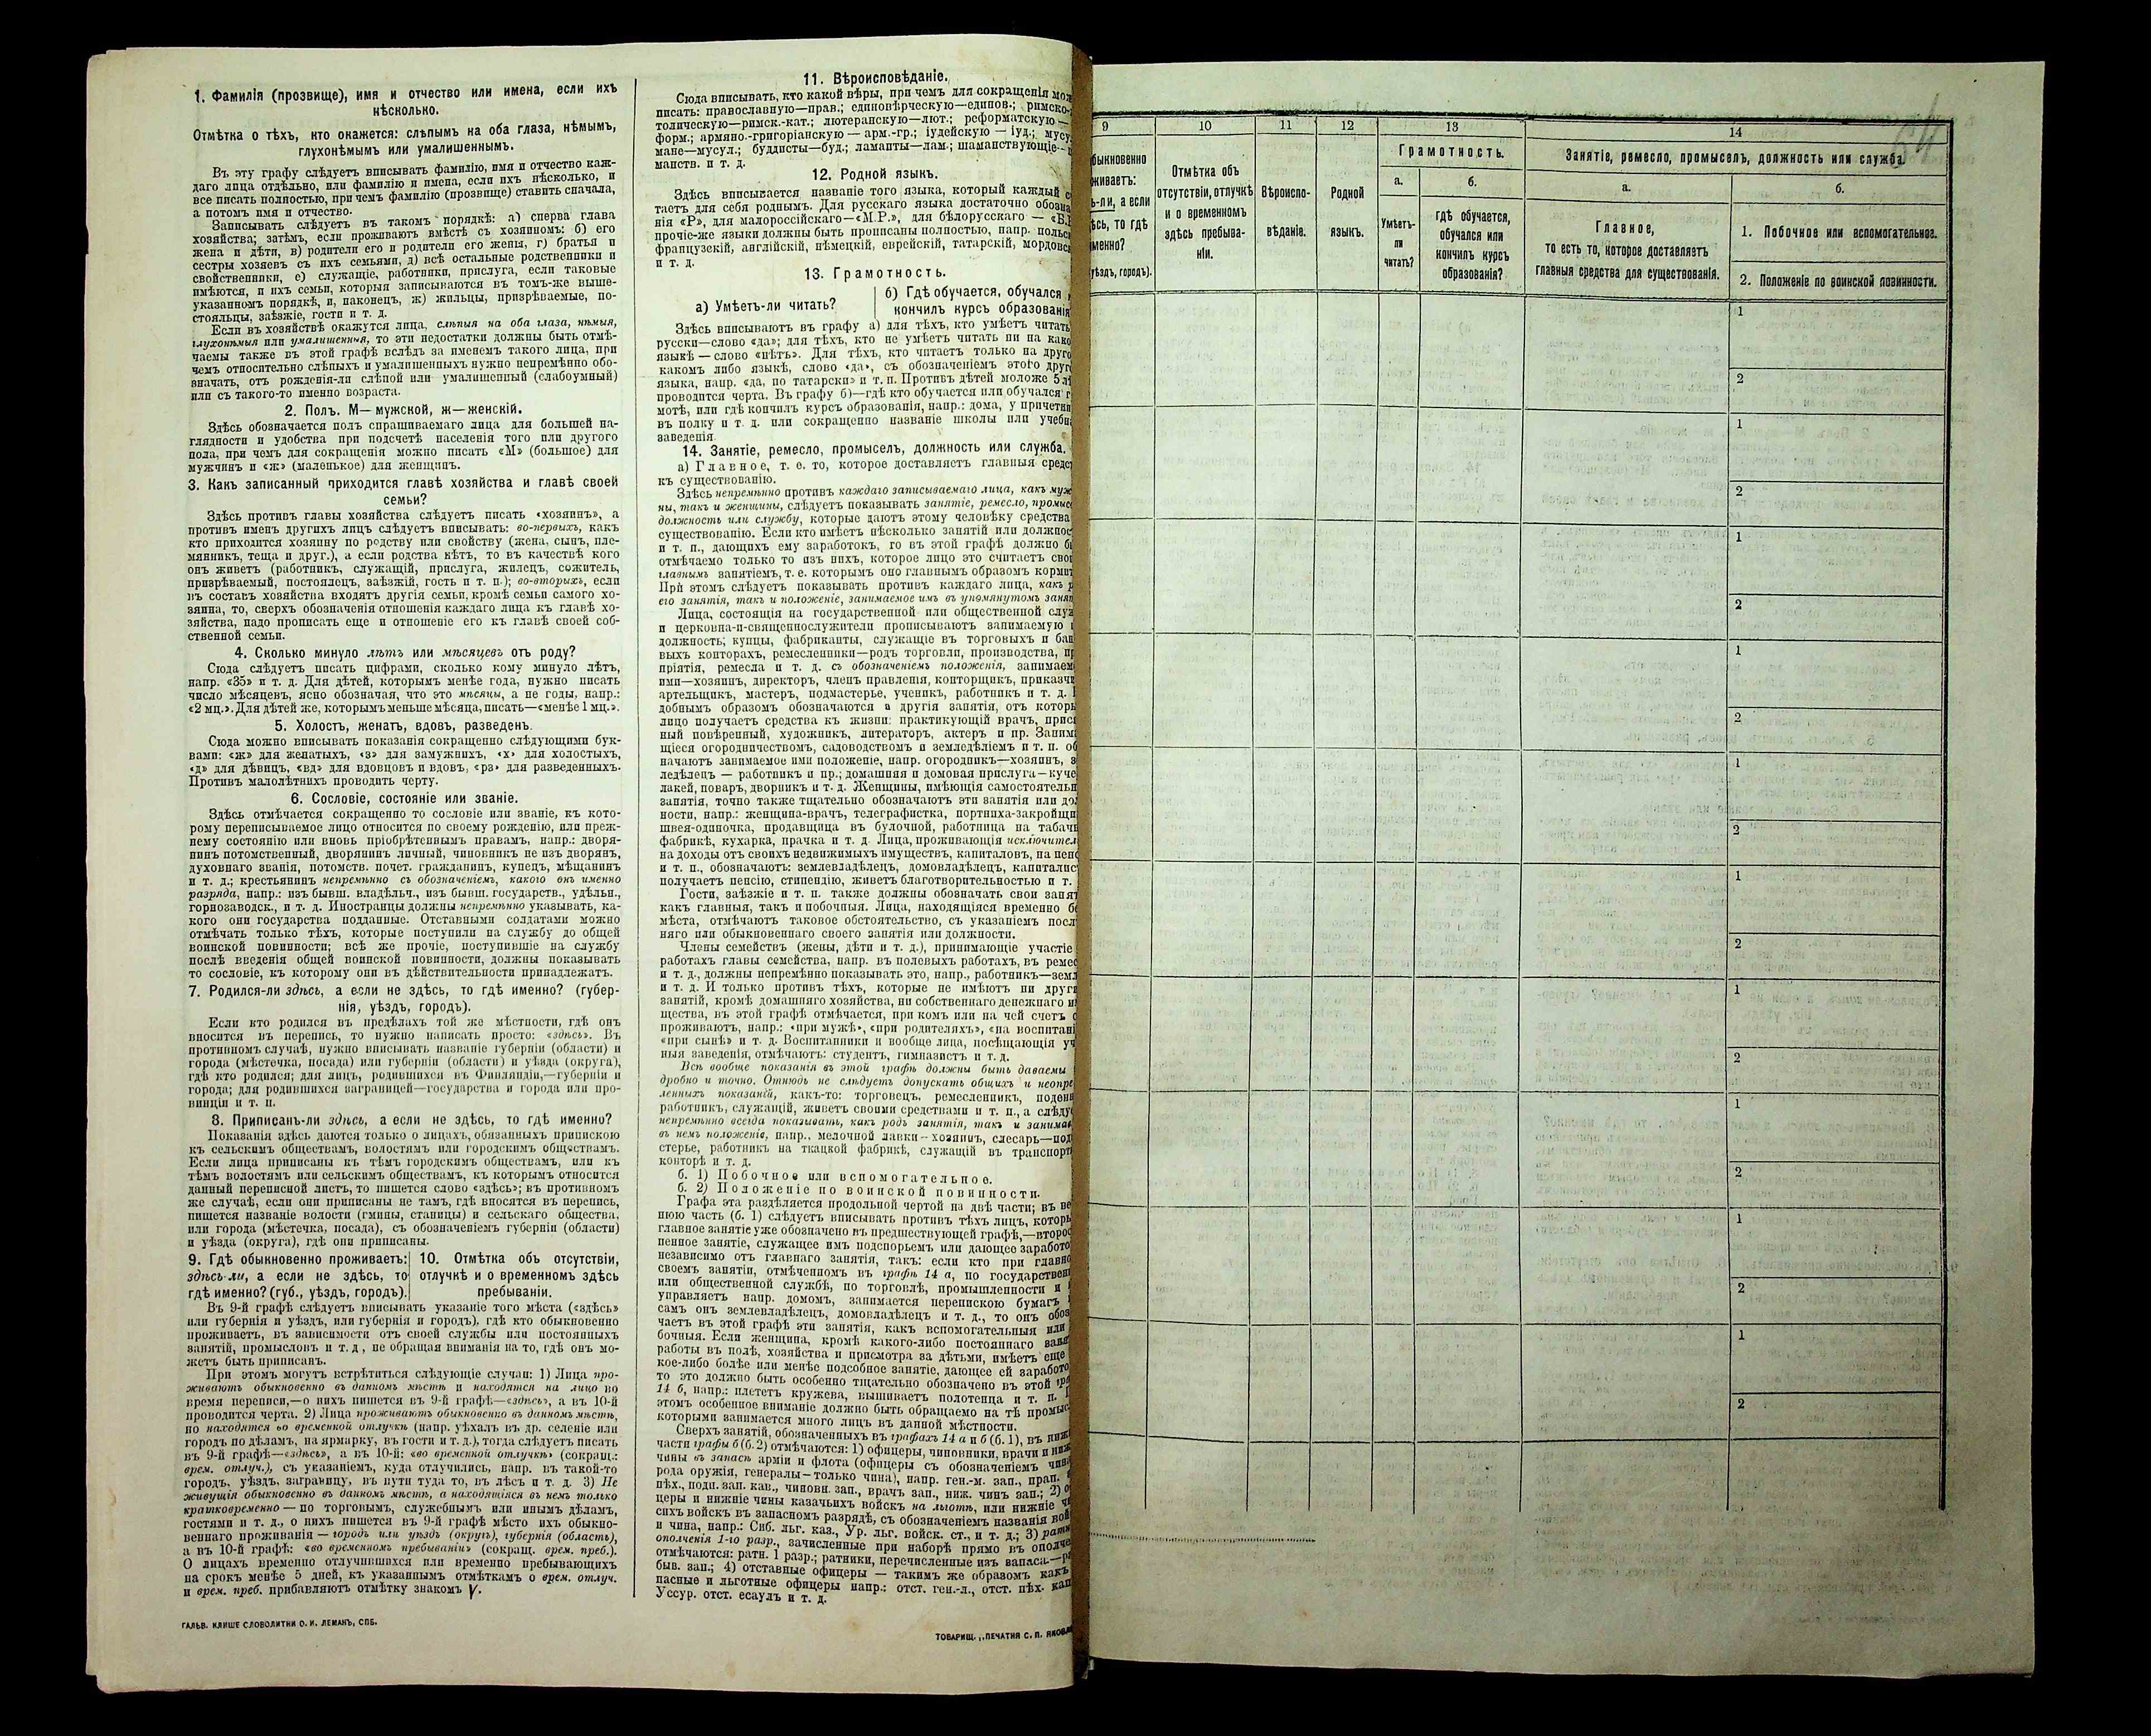 1. Фамилія (прозвище), имя и отчество или имена, если ихъ
нѣсколько.
Отмѣтка о тѣхъ, кто окажется: слѣпымъ на оба глаза, нѣмымъ,
глухонѣмымъ или умалишеннымъ.
Въ эту графу слѣдуетъ вписывать фамилію, имя и отчество каж-
даго лица отдѣльно, или фамилію и имена, если ихъ нѣсколько, и
все писать полностью, при чемъ фамилію (прозвище) ставить сначала,
а потомъ имя и отчество.
Записывать слѣдуетъ въ такомъ порядкѣ: а) сперва глава
хозяйства; затѣмъ, если проживаютъ вмѣстѣ съ хозяиномъ: б) его
жена и дѣти, в) родители его и родители его жены, г) братья и
сестры хозяевъ съ ихъ семьями, д) всѣ остальные родственники и
свойственники, е) служащіе, работники, прислуга, если таковые
имѣются, и ихъ семьи, которыя записываются въ томъ-же выше-
указанномъ порядкѣ, и, наконецъ, ж) жильцы, призрѣваемые, по-
стояльцы, заѣзжіе, гости и т. д.
Если въ хозяйствѣ окажутся лица, слѣпыя на оба глаза, нѣмыя,
глухонѣмыя или умалишенныя, то эти недостатки должны быть отмѣ-
чаемы также въ этой графѣ вслѣдъ за именемъ такого лица, при
чемъ относительно слѣпыхъ и умалишенныхъ нужно непремѣнно обо-
значать, отъ рожденія-ли слѣпой или умалишенный (слабоумный)
или съ такого-то именно возраста.
2. Полъ. М—мужской, ж—женскій.
Здѣсь обозначается полъ спрашиваемаго лица для большей на-
глядности и удобства при подсчетѣ населенія того или другого
пола, при чемъ для сокращенія можно писать «М» (большое) для
мужчинъ и «ж» (маленькое) для женщинъ.
3. Какъ записанный приходится главѣ хозяйства и главѣ своей
семьи?
Здѣсь противъ главы хозяйства слѣдуетъ писать «хозяинъ», а
противъ именъ другихъ лицъ слѣдуетъ вписывать: во-первыхъ, какъ
кто приходится хозяину по родству или свойству (жена, сынъ, пле-
мянникъ, теща и друг.), а если родства нѣтъ, то въ качествѣ кого
онъ живетъ (работникъ, служащій, прислуга, жилецъ, сожитель,
призрѣваемый, постоялецъ, заѣзжій, гость и т. п.); во-вторыхъ, если
въ составъ хозяйства входятъ другія семьи, кромѣ семьи самого хо-
зяина, то, сверхъ обозначенія отношенія каждаго лица къ главѣ хо-
зяйства, надо прописать еще и отношеніе его къ главѣ своей соб-
ственной семьи.
4. Сколько минуло лѣтъ или мѣсяцевъ отъ роду?
Сюда слѣдуетъ писать цифрами, сколько кому минуло лѣтъ,
напр. «35» и т. д. Для дѣтей, которымъ менѣе года, нужно писать
число мѣсяцевъ, ясно обозначая, что это мѣсяцы, а не годы, напр.:
«2 мц.». Для дѣтей же, которымъ меньше мѣсяца, писать—«менѣе 1 мц.».
5. Холостъ, женатъ, вдовъ, разведенъ.
Сюда можно вписывать показанія сокращенно слѣдующими бук-
вами: «ж» для женатыхъ, «з» для замужнихъ, «х» для холостыхъ,
«д» для дѣвицъ, «вд» для вдовцовъ и вдовъ, «рз» для разведенныхъ.
Противъ малолѣтнихъ проводить черту.
6. Сословіе, состояніе или званіе.
Здѣсь отмѣчается сокращенно то сословіе или званіе, къ кото-
рому переписываемое лицо относится по своему рожденію, или преж-
нему состоянію или вновь пріобрѣтеннымъ правамъ, напр.: дворя-
нинъ потомственный, дворянинъ личный, чиновникъ не изъ дворянъ,
духовнаго званія, потомств. почет. гражданинъ, купецъ, мѣщанинъ
и т. д.; крестьянинъ непремѣнно съ обозначеніемъ, какого онъ именно
разряда, напр.: изъ бывш. владѣльч., изъ бывш. государств., удѣльн.,
горнозаводск., и т. д. Иностранцы должны непремѣнно указывать, ка-
кого они государства подданные. Отставными солдатами можно
отмѣчать только тѣхъ, которые поступили на службу до общей
воинской повинности; всѣ же прочіе, поступившіе на службу
послѣ введенія общей воинской повинности, должны показывать
то сословіе, къ которому они въ дѣйствительности принадлежатъ.
7. Родился-ли здѣсь, а если не здѣсь, то гдѣ именно? (губер-
нія, уѣздъ, городъ).
Если кто родился въ предѣлахъ той же мѣстности, гдѣ онъ
вносится въ перепись, то нужно написать просто: «здѣсь». Въ
противномъ случаѣ, нужно вписывать названіе губерніи (области) и
города (мѣстечка, посада) или губерніи (области) и уѣзда (округа),
гдѣ кто родился; для лицъ, родившихся въ Финляндіи,—губерніи и
города; для родившихся заграницей—государства и города или про-
винціи и т. п.
8. Приписанъ-ли здѣсь, а если не здѣсь, то гдѣ именно?
Показанія здѣсь даются только о лицахъ, обязанныхъ припискою
къ сельскимъ обществамъ, волостямъ или городскимъ обществамъ.
Если лица приписаны къ тѣмъ городскимъ обществамъ, или къ
тѣмъ волостямъ или сельскимъ обществамъ, къ которымъ относится
данный переписной листъ, то пишется слово «здѣсь»; въ противномъ
же случаѣ, если они приписаны не тамъ, гдѣ вносятся въ перепись,
пишется названіе волости (гмины, станицы) и сельскаго общества,
или города (мѣстечка, посада), съ обозначеніемъ губерніи (области)
и уѣзда (округа), гдѣ они приписаны.
9. Гдѣ обыкновенно проживаетъ:
здѣсь-ли, а если не здѣсь, то
гдѣ именно? (губ., уѣздъ, городъ).
10. Отмѣтка объ отсутствіи,
отлучкѣ и о временномъ здѣсь
пребываніи.
Въ 9-й графѣ слѣдуетъ вписывать указаніе того мѣста («здѣсь»
или губернія и уѣздъ, или губернія и городъ), гдѣ кто обыкновенно
проживаетъ, въ зависимости отъ своей службы или постоянныхъ
занятій, промысловъ и т. д., не обращая вниманія на то, гдѣ онъ мо-
жетъ быть приписанъ.
При этомъ могутъ встрѣтиться слѣдующіе случаи: 1) Лица про-
живаютъ обыкновенно въ данномъ мѣстѣ и находятся на лицо во
время переписи,—о нихъ пишется въ 9-й графѣ—«здѣсь», а въ 10-й
проводится черта. 2) Лица проживаютъ обыкновенно въ данномъ мѣстѣ,
но находятся во временной отлучкѣ (напр. уѣхалъ въ др. селеніе или
городъ по дѣламъ, на ярмарку, въ гости и т. д.), тогда слѣдуетъ писать
въ 9-й графѣ—«здѣсь», а въ 10-й: «во временной отлучкѣ» (сокращ.:
врем. отлуч.), съ указаніемъ, куда отлучились, напр. въ такой-то
городъ, уѣздъ, заграницу, въ пути туда то, въ лѣсъ и т. д. 3) Не
живущія обыкновенно въ данномъ мѣстѣ, а находящіяся въ немъ только
кратковременно — по торговымъ, служебнымъ или инымъ дѣламъ,
гостями и т. д., о нихъ пишется въ 9-й графѣ мѣсто ихъ обыкно-
веннаго проживанія — городъ или уѣздъ (округъ), губернія (область),
а въ 10-й графѣ: «во временномъ пребываніи» (сокращ. врем. преб.).
О лицахъ временно отлучившихся или временно пребывающихъ
на срокъ менѣе 5 дней, къ указаннымъ отмѣткамъ о врем. отлуч.
и врем. преб. прибавляютъ отмѣтку знакомъ V.
ГАЛЬВ. КЛИШЕ СЛОВОЛИТНИ О. И. ЛЕМАНЪ, СПБ.
11. Вѣроисповѣданіе.
Сюда вписывать, кто какой вѣры, при чемъ для сокращенія мож
писать: православную—прав.; единовѣрческую—единов.; римско-
толическую—римск.-кат.; лютеранскую—лют.; реформатскую—
форм.; армяно.-григоріанскую — арм.-гр.; іудейскую — іуд.; мусу
мане—мусул.; буддисты—буд.; ламаиты—лам.; шаманствующіе—
манств. и т. д.
12. Родной языкъ.
Здѣсь вписывается названіе того языка, который каждый с
таетъ для себя роднымъ. Для русскаго языка достаточно обозна
нія «Р», для малороссійскаго—«М.Р.», для бѣлорусскаго — «Б.
прочіе-же языки должны быть прописаны полностью, напр. польс
французскій, англійскій, нѣмецкій, еврейскій, татарскій, мордовс
и т. д.
13. Грамотность.
а) Умѣетъ-ли читать?
б) Гдѣ обучается, обучался
кончилъ курсъ образованія
Здѣсь вписываютъ въ графу а) для тѣхъ, кто умѣетъ читать
русски—слово «да»; для тѣхъ, кто не умѣетъ читать ни на како
языкѣ — слово «нѣтъ». Для тѣхъ, кто читаетъ только на друго
какомъ либо языкѣ, слово «да», съ обозначеніемъ этого друг
языка, напр. «да, по татарски» и т. п. Противъ дѣтей моложе 5 лѣ
проводится черта. Въ графу б)—гдѣ кто обучается или обучался г
мотѣ, или гдѣ кончилъ курсъ образованія, напр.: дома, у причетни
въ полку и т. д. или сокращенно названіе школы или учебн
заведенія.
14. Занятіе, ремесло, промыселъ, должность или служба.
а) Главное, т. е. то, которое доставляетъ главныя средст
къ существованію.
Здѣсь непремѣнно противъ каждаго записываемаго лица, какъ муж
ны, такъ и женщины, слѣдуетъ показывать занятіе, ремесло, промыс
должность или службу, которые даютъ этому человѣку средства
существованію. Если кто имѣетъ нѣсколько занятій или должнос
и т. п., дающихъ ему заработокъ, то въ этой графѣ должно б
отмѣчаемо только то изъ нихъ, которое лицо это считаетъ свои
главнымъ занятіемъ, т. е. которымъ оно главнымъ образомъ кормит
При этомъ слѣдуетъ показывать противъ каждаго лица, какъ р
его занятія, такъ и положеніе, занимаемое имъ въ упомянутомъ занят
Лица, состоящія на государственной или общественной служ
и церковна-и-священнослужители прописываютъ занимаемую
должность; купцы, фабриканты, служащіе въ торговыхъ и бан
выхъ конторахъ, ремесленники—родъ торговли, производства, пр
пріятія, ремесла и т. д. съ обозначеніемъ положенія, занимаем
ими—хозяинъ, директоръ, членъ правленія, конторщикъ, приказчи
артельщикъ, мастеръ, подмастерье, ученикъ, работникъ и т. д.
добнымъ образомъ обозначаются и другія занятія, отъ которы
лицо получаетъ средства къ жизни: практикующій врачъ, прися
ный повѣренный, художникъ, литераторъ, актеръ и пр. Заним
щіеся огородничествомъ, садоводствомъ и земледѣліемъ и т. п. об
начаютъ занимаемое ими положеніе, напр. огородникъ—хозяинъ, з
ледѣлецъ — работникъ и пр.; домашняя и домовая прислуга—куче
лакей, поваръ, дворникъ и т. д. Женщины, имѣющія самостоятельн
занятія, точно также тщательно обозначаютъ эти занятія или дол
ности, напр.: женщина-врачъ, телеграфистка, портниха-закройщи
швея-одиночка, продавщица въ булочной, работница на табачн
фабрикѣ, кухарка, прачка и т. д. Лица, проживающія исключител
на доходы отъ своихъ недвижимыхъ имуществъ, капиталовъ, на пенс
и т. п., обозначаютъ: землевладѣлецъ, домовладѣлецъ, капиталис
получаетъ пенсію, стипендію, живетъ благотворительностью и т.
Гости, заѣзжіе и т. п. также должны обозначать свои занят
какъ главныя, такъ и побочныя. Лица, находящіяся временно бе
мѣста, отмѣчаютъ таковое обстоятельство, съ указаніемъ посл
няго или обыкновеннаго своего занятія или должности.
Члены семействъ (жены, дѣти и т. д.), принимающіе участіе
работахъ главы семейства, напр. въ полевыхъ работахъ, въ ремес
и т. д., должны непремѣнно показывать это, напр., работникъ—земл
и т. д. И только противъ тѣхъ, которые не имѣютъ ни други
занятій, кромѣ домашняго хозяйства, ни собственнаго денежнаго и
щества, въ этой графѣ отмѣчается, при комъ или на чей счетъ о
проживаютъ, напр.: «при мужѣ», «при родителяхъ», «на воспитані
«при сынѣ» и т. д. Воспитанники и вообще лица, посѣщающія уч
ныя заведенія, отмѣчаютъ: студентъ, гимназистъ и т. д.
Всѣ вообще показанія въ этой графѣ должны быть даваемы
дробно и точно. Отнюдь не слѣдуетъ допускать общихъ и неопре
ленныхъ показаній, какъ-то: торговецъ, ремесленникъ, поденщ
работникъ, служащій, живетъ своими средствами и т. п., а слѣду
непремѣнно всегда показывать, какъ родъ занятія, такъ и занимае
въ немъ положеніе, напр., мелочной лавки—хозяинъ, слесарь—под
стерье, работникъ на ткацкой фабрикѣ, служащій въ транспорт
конторѣ и т. д.
б. 1) Побочное или вспомогательное.
б. 2) Положеніе по воинской повинности.
Графа эта раздѣляется продольной чертой на двѣ части; въ ве
нюю часть (б. 1) слѣдуетъ вписывать противъ тѣхъ лицъ, которы
главное занятіе уже обозначено въ предшествующей графѣ,—второс
пенное занятіе, служащее имъ подспорьемъ или дающее заработо
независимо отъ главнаго занятія, такъ: если кто при главно
своемъ занятіи, отмѣченномъ въ графѣ 14 а, по государствен
или общественной службѣ, по торговлѣ, промышленности и
управляетъ напр. домомъ, занимается перепискою бумагъ
самъ онъ землевладѣлецъ, домовладѣлецъ и т. д., то онъ обоз
чаетъ въ этой графѣ эти занятія, какъ вспомогательныя или
бочныя. Если женщина, кромѣ какого-либо постояннаго заня
работы въ полѣ, хозяйства и присмотра за дѣтьми, имѣетъ еще
кое-либо болѣе или менѣе подсобное занятіе, дающее ей заработо
то это должно быть особенно тщательно обозначено въ этой гра
14 б, напр.: плететъ кружева, вышиваетъ полотенца и т. п.
этомъ особенное вниманіе должно быть обращаемо на тѣ промыс
которыми занимается много лицъ въ данной мѣстности.
Сверхъ занятій, обозначенныхъ въ графахъ 14 а и б (б. 1), въ ниж
части графы б (б. 2) отмѣчаются: 1) офицеры, чиновники, врачи и ниж
чины въ запасѣ арміи и флота (офицеры съ обозначеніемъ чин
рода оружія, генералы—только чина), напр. ген.-м. зап., прап.
пѣх., подп. зап. кав., чиновн. зап., врачъ зап., ниж. чинъ зап.; 2) о
церы и нижніе чины казачьихъ войскъ на льготѣ, или нижніе ч
сихъ войскъ въ запасномъ разрядѣ, съ обозначеніемъ названія вой
и чина, напр.: Сиб. льг. каз., Ур. льг. войск. ст., и т. д.; 3) ратн
ополченія 1-го разр., зачисленные при наборѣ прямо въ ополче
отмѣчаются: ратн. 1 разр.; ратники, перечисленные изъ запаса—р
быв. зап.; 4) отставные офицеры — такимъ же образомъ какъ
пасные и льготные офицеры напр.: отст. ген.-л., отст. пѣх. кап
Уссур. отст. есаулъ и т. д.
ТОВАРИЩ. „ПЕЧАТНЯ С. П. ЯКОВЛ
64
9
10
11
12
13
14
быкновенно
живаетъ:
ь-ли, а если
ѣсь, то гдѣ
менно?
уѣздъ, городъ).
Отмѣтка объ
отсутствіи, отлучкѣ
и о временномъ
здѣсь пребыва-
ніи.
Вѣроиспо-
вѣданіе.
Родной
языкъ.
Грамотность.
а.
Умѣетъ-
ли
читать?
б.
гдѣ обучается,
обучался или
кончилъ курсъ
образованія?
Занятіе, ремесло, промыселъ, должность или служба.
а.
Главное,
то есть то, которое доставляетъ
главныя средства для существованія.
б.
1. Побочное или вспомогательное.
2. Положеніе по воинской повинности.
1
2
1
2
1
2
1
2
1
2
1
2
1
2
1
2
1
2
1
2